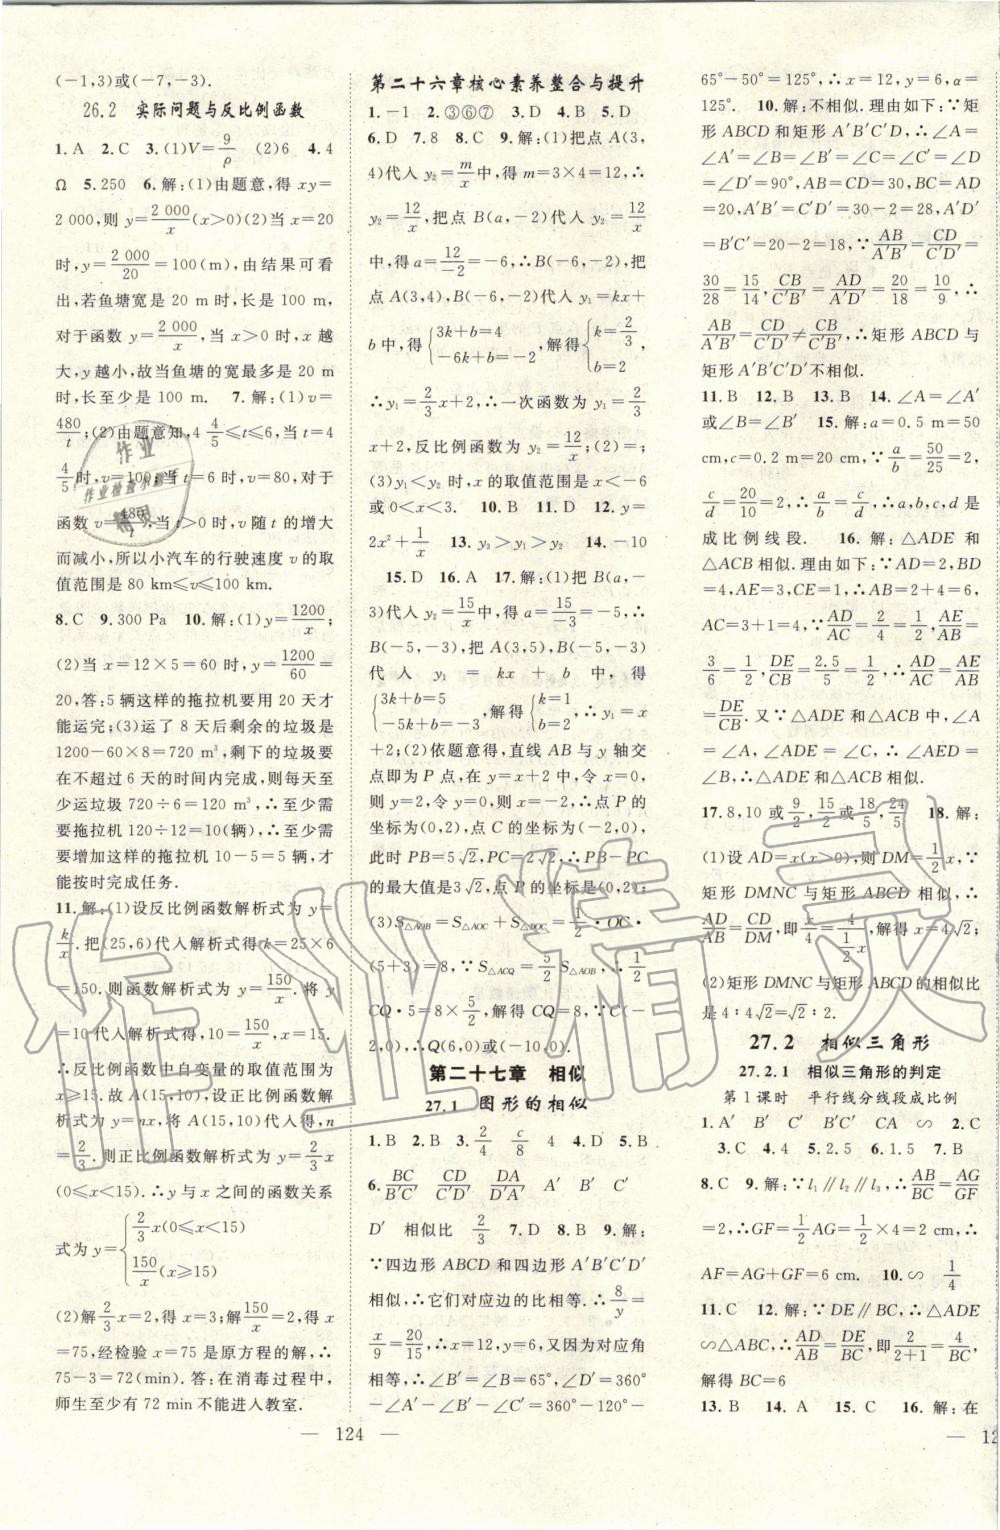 (-1,3)或(-7,-3).
26.2 实际问题与反比例函数
1.A 2.C 3.(1)V=9/ρ (2)6 4.4
Ω 5.250 6.解:(1)由题意,得 xy=
2 000,则 y=2 000/x(x>0)(2)当 x=20
时,y=2 000/20=100(m),由结果可看
出,若鱼塘宽是 20 m时,长是 100 m.
对于函数 y=2 000/x,当 x>0 时,x 越
大,y越小,故当鱼塘的宽最多是 20 m
时,长至少是 100 m. 7.解:(1)v=
480/t;(2)由题意知,4 4/5≤t≤6,当 t=4
4/5时,v=100;当 t=6 时,v=80,对于
函数 v=480/t,当 t>0 时,v 随 t 的增大
而减小,所以小汽车的行驶速度 v 的取
值范围是 80 km≤v≤100 km.
8.C 9.300 Pa 10.解:(1)y=1200/x;
(2)当 x=12×5=60 时,y=1200/60=
20,答:5 辆这样的拖拉机要用 20 天才
能运完;(3)运了 8 天后剩余的垃圾是
1200-60×8=720 m³,剩下的垃圾要
在不超过 6 天的时间内完成,则每天至
少运垃圾 720÷6=120 m³,∴至少需
要拖拉机 120÷12=10(辆),∴至少需
要增加这样的拖拉机 10-5=5(辆)才
能按时完成任务.
11.解:(1)设反比例函数解析式为 y=
k/x.把(25,6)代入解析式得 k=25×6
=150.则函数解析式为 y=150/x.将 y
=10代入解析式得,10=150/x,x=15.
∴反比例函数中自变量的取值范围为
x≥15.故 A(15,10),设正比例函数解
析式为 y=nx,将 A(15,10)代入得,n
=2/3.则正比例函数解析式为 y=2/3x
(0≤x<15).∴y与 x 之间的函数关系
式为 y={2/3x(0≤x<15)
150/x(x≥15)
(2)解2/3x=2,得 x=3;解150/x=2,得 x
=75,经检验 x=75 是原方程的解,∴
75-3=72(min). 答:在消毒过程中,
师生至少有 72 min不能进入教室.
第二十六章核心素养整合与提升
1.-1 2.③⑥⑦ 3.D 4.B 5.D
6.D 7.8 8.C 9.解:(1)把点 A(3,
4)代入 y₂=m/x中,得 m=3×4=12,∴
y₂=12/x,把点 B(a,-2)代入 y₂=12/x
中,得 a=12/-2=-6,∴B(-6,-2),把
点 A(3,4),B(-6,-2)代入 y₁=kx+
b中,得{3k+b=4
-6k+b=-2,解得{k=2/3
b=2
∴y₁=2/3x+2,∴一次函数为 y₁=2/3
x+2,反比例函数为 y₂=12/x;(2)8;
(3)y₁<y₂ 时,x 的取值范围是 x<-6
或 0<x<3. 10.B 11.D 12.y=
2x²+1/x 13.y₃>y₁>y₂ 14.-10
15.D 16.A 17.解:(1)把 B(a,-
3)代入 y₂=15/x中,得 a=15/-3=-5,∴
B(-5,-3),把 A(3,5),B(-5,-3)
代入 y₁=kx+b 中,得
{3k+b=5
-5k+b=-3,解得{k=1
b=2,∴y₁=x
+2;(2)依题意得,直线 AB 与 y 轴交
点即为 P 点,在 y=x+2 中,令 x=0,
则 y=0+2,解得 y=2,∴点 P 的
坐标为(0,2),点 C 的坐标为(-2,0),
此时 PB=5√2,PC=2√2,∴PB-PC
的最大值是3√2,点 P的坐标是(0,2);
(3)S△AOB=S△AOC+S△BOC=1/2·OC·
(5+3)=8,∵S△ACQ=5/2S△AOB,∴1/2
CQ·5=8×5/2,解得 CQ=8,∵C(-
2,0),∴Q(6,0)或(-10,0).
第二十七章 相似
27.1 图形的相似
1.B 2.B 3.2/4 c/8 4 4.D 5.B
6.BC/B′C′ CD/C′D′ DA/D′A′ A′ B′ C′
D′ 相似比 2/3 7.D 8.B 9.解:
∵四边形 ABCD 和四边形 A′B′C′D′
相似,∴它们对应边的比相等.∴8/y=
x/9=20/15,∴x=12,y=6,又因为对应角
相等,∴∠B′=∠B=65°,∴∠D′=360°
-∠A′-∠B′-∠C′=360°-120°-
65°-50°=125°,∴x=12,y=6,α=
125°. 10.解:不相似.理由如下:∵矩
形 ABCD 和矩形 A′B′C′D′,∴∠A=
∠A′=∠B=∠B′=∠C=∠C′=∠D
=∠D′=90°,AB=CD=30,BC=AD
=20,A′B′=C′D′=30-2=28,A′D′
=B′C′=20-2=18,∵AB/A′B′=CD/C′D′=
30/28=15/14,CB/C′B′=AD/A′D′=20/18=10/9,∴
AB/A′B′=CD/C′D′≠CB/C′B′,∴矩形 ABCD 与
矩形 A′B′C′D′不相似.
11.B 12.B 13.B 14.∠A=∠A′
或∠B=∠B′ 15.解:a=0.5 m=50
cm,c=0.2 m=20 cm,∵a/b=50/25=2,
c/d=20/10=2,∴a/b=c/d,∴a,b,c,d 是
成比例线段. 16.解:△ADE 和
△ACB相似.理由如下:∵AD=2,BD
=4,AE=3,CE=1,∴AB=2+4=6,
AC=3+1=4,∵AD/AC=2/4=1/2,AE/AB=
3/6=1/2,DE/CB=2.5/5=1/2,∴AD/AC=AE/AB
=DE/CB.又∵△ADE和△ACB中,∠A
=∠A,∠ADE=∠C,∴∠AED=
∠B,∴△ADE与△ACB相似.
17.8,10 或9/2,15/2或18/5,24/5 18.解:
(1)设 AD=x(x>0),则 DM=1/2x,∵
矩形 DMNC 与矩形 ABCD 相似,∴
AD/AB=CD/DM,即x/4=4/(1/2x),解得 x=4√2;
(2)矩形 DMNC 与矩形 ABCD 的相似比
是 4∶4√2=√2∶2.
27.2 相似三角形
27.2.1 相似三角形的判定
第1课时 平行线分线段成比例
1.A′ B′ C′ B′C′ CA ∽ 2.C
3.C 4.5 5.2.5 6.1.5 7.B
8.C 9.解:∵l₁∥l₂∥l₃,∴AB/BC=AG/GF
=2,∴GF=1/2AG=1/2×4=2 cm,∴
AF=AG+GF=6 cm. 10.∽ 1/4
11.C 12.解:∵DE∥BC,∴△ADE
∽△ABC,∴AD/AB=DE/BC,即2/2+1=4/BC,
解得 BC=6
13.B 14.A 15.C 16.解:在
— 124 —
作业精灵
作业
作业检查小助手
精灵